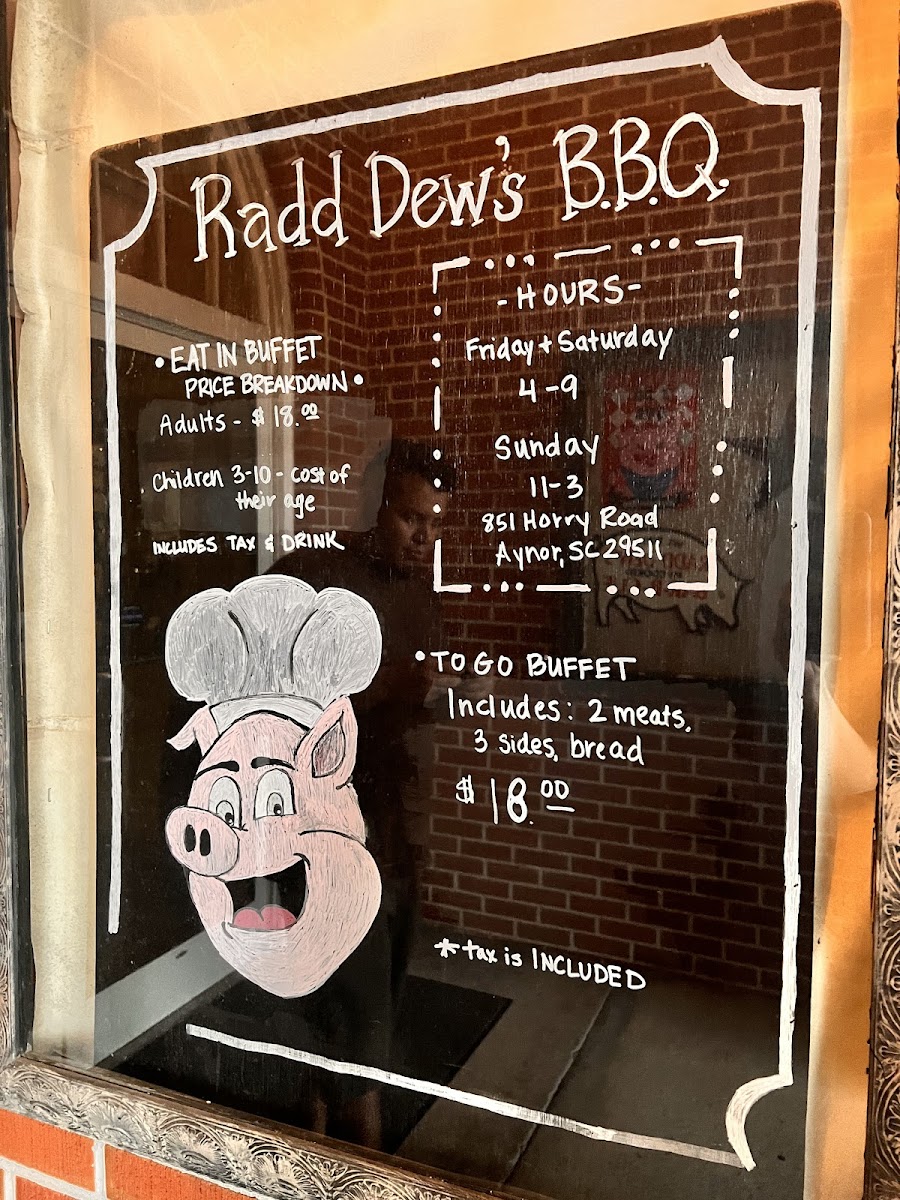 Radd Dew's B.B.Q.
• EAT IN BUFFET
PRICE BREAKDOWN •
Adults - $ 18.00
Children 3-10 - cost of
their age
INCLUDES TAX & DRINK
- HOURS -
Friday + Saturday
4-9
Sunday
11-3
851 Horry Road
Aynor, SC 29511
• TO GO BUFFET
Includes: 2 meats,
3 sides, bread
$ 18.00
* tax is INCLUDED